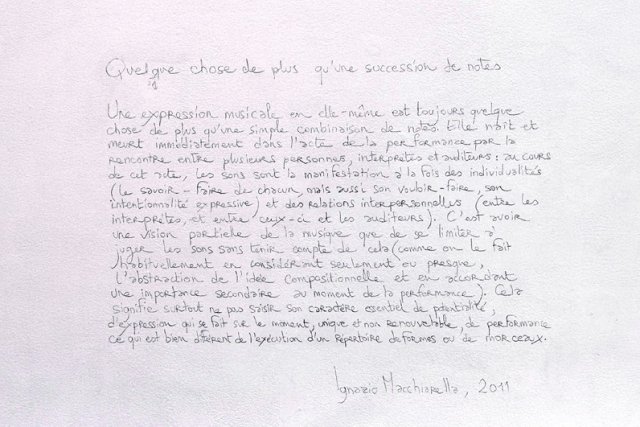 Quelque chose de plus qu'une succession de notes
Une expression musicale en elle-même est toujours quelque
chose de plus qu'une simple combinaison de notes. Elle naît et
meurt immédiatement dans l'acte de la performance par la
rencontre entre plusieurs personnes, interprètes et auditeurs : au cours
de cet acte, les sons sont la manifestation à la fois des individualités
(le savoir-faire de chacun, mais aussi son vouloir-faire, son
intentionnalité expressive) et des relations interpersonnelles (entre les
interprètes, et entre ceux-ci et les auditeurs). C'est avoir
une vision partielle de la musique que de se limiter à
juger les sons sans tenir compte de cela (comme on le fait
habituellement en considérant seulement ou presque,
l'abstraction de l'idée compositionnelle et en accordant
une importance secondaire au moment de la performance). Cela
signifie surtout ne pas saisir son caractère essentiel de potentialité,
d'expression qui se fait sur le moment, unique et non renouvelable, de performance
ce qui est bien différent de l'exécution d'un répertoire de formes ou de morceaux.
Ignazio Macchiarella, 2011